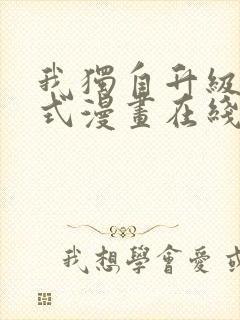 我獨自升級
式漫畫在綫
我想學會愛 或